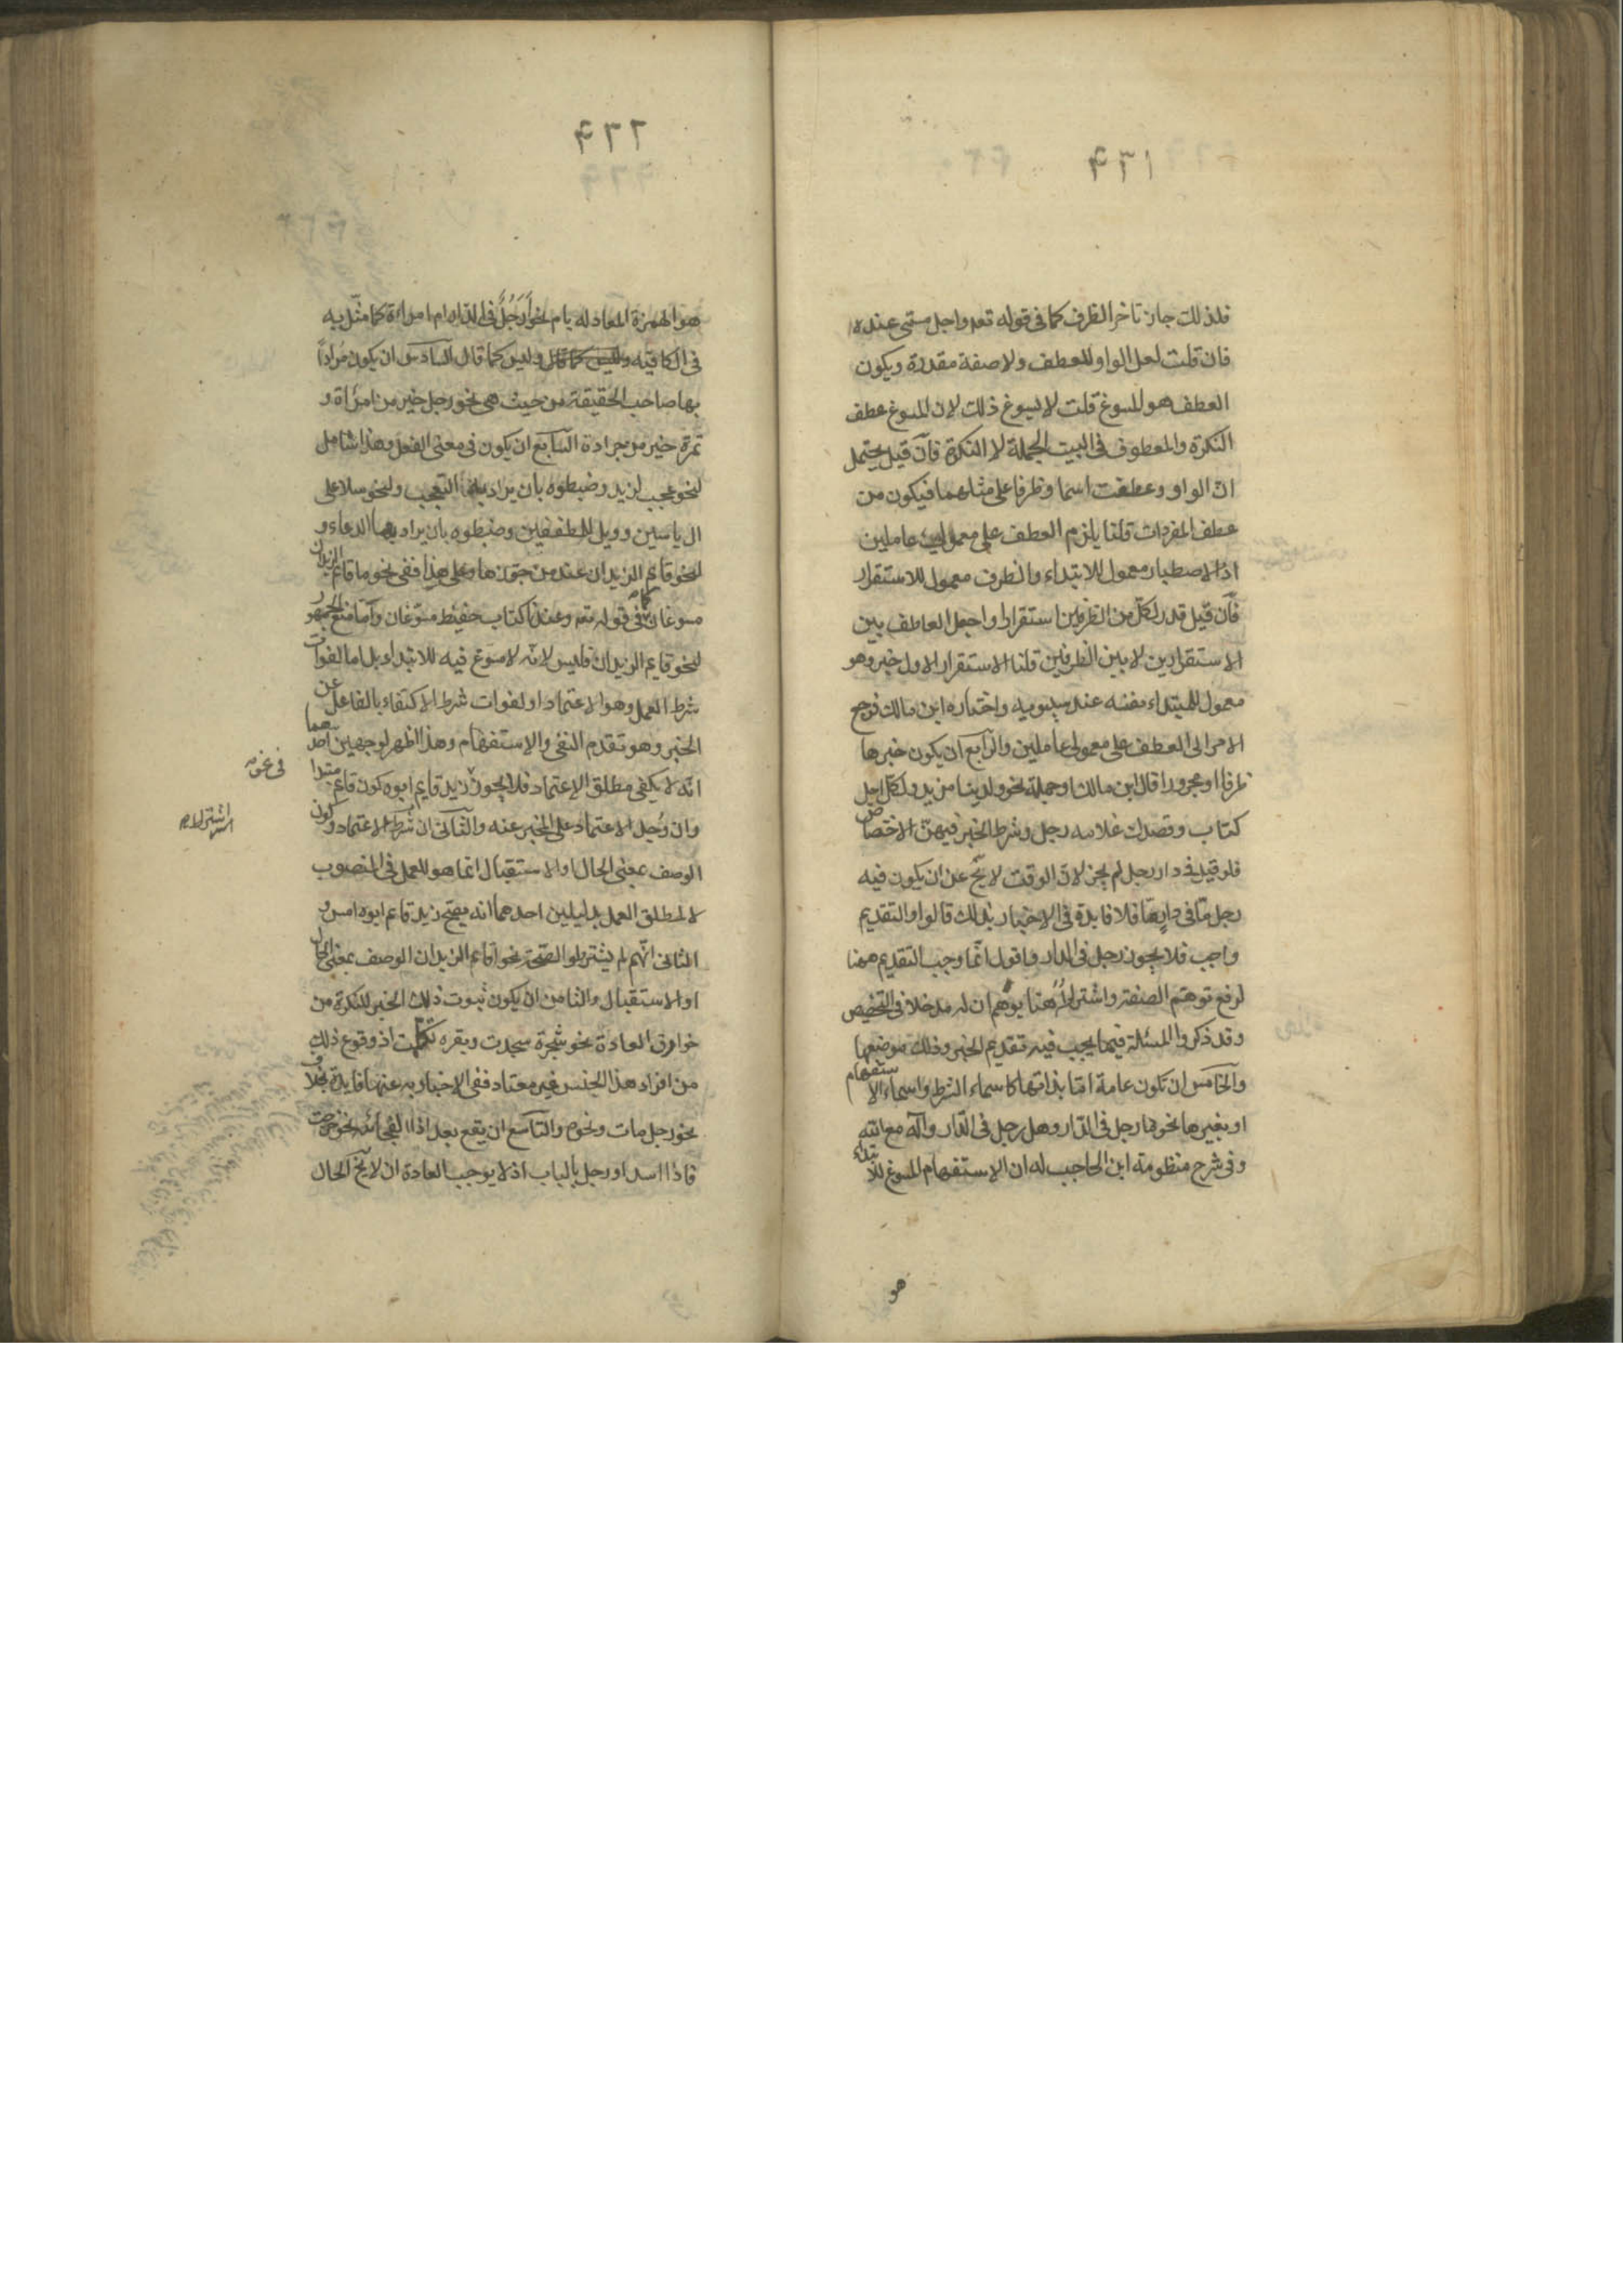 ٩٣١
فلذلك جاز تاخر الظرف كما فى قوله تعه واجل مسمى عنده
فان قلت لعل الواو للعطف ولا صفة مقدرة ويكون
العطف هو المسوغ قلت لا يسوغ ذلك لان المسوغ عطف
النكرة والمعطوف فى البيت الجملة لا النكرة فان قيل يحتمل
ان الواو وعطفت اسما وظرفا على مثلهما فيكون من
عطف المفردات قلنا يلزم العطف على معمولى عاملين
اذ الاصطبار معمول للابتداء والظرف معمول للاستقرار
فان قيل قدر لكل من الظرفين استقرارا واجعل العاطف بين
الاستقرارين لا بين الظرفين قلنا الاستقرار الاول خبر وهو
معمول للمبتداء نفسه عند سيبويه واختاره ابن مالك فرجع
الامر الى العطف على معمولى عاملين والرابع ان يكون خبرها
ظرفا او مجرورا قال ابن مالك او جملة نحو ولدينا مزيد ولكل اجل
كتاب وقصدك غلامه رجل وشرط الخبر فيهن الاختصاص
فلو قيل فى دار رجل لم يجز لان الوقت لا يخ عن ان يكون فيه
رجل ما فى دار ما فلا فايدة فى الاخبار بذلك قالوا والتقديم
واجب فلا يجوز رجل فى الدار واقول انما وجب التقديم هنا
لرفع توهم الصفة واشتراطه هنا يوهم ان له مدخلا فى التخصيص
وقد ذكروا المسئلة فيما يجب فيه تقديم الخبر وذلك موضعها
والخامس ان تكون عامة اما بذاتها كاسماء الشرط واسماء الاستفهام
او بغيرها نحو ما رجل فى الدار وهل رجل فى الدار واله مع الله
وفى شرح منظومة ابن الحاجب له ان الاستفهام المسوغ للابتداء
هو
٩٣٢
هو الهمزة المعادله بام نحو ارجل فى الدار ام امراة كما مثل به
فى الكافيه وليس كما قال وليس كما قال السادس ان يكون مرادا
بها صاحب الحقيقة من حيث هى نحو رجل خير من امراة و
تمرة خير من جرادة السابع ان يكون فى معنى الفعل وهذا شامل
لنحو عجب لزيد وضبطوه بان يراد بها التعجب ولنحو سلا على
ال ياسين وويل للمطففين وضبطوه بان يراد بها الدعاء و
لنحو قايم الزيدان عند من جوزها وعلى هذا ففى نحو ما قايم الزيدان
مسوغان كما فى قوله تعه وعندنا كتاب حفيظ مسوغان واما منع الجمهور
لنحو قايم الزيدان فليس لانه لا مسوغ فيه للابتداء بل اما لفوات
شرط العمل وهو الاعتماد او لفوات شرط الاكتفاء بالفاعل عن
الخبر وهو تقدم النفى والاستفهام وهذا اظهر لوجهين احدهما
انه لا يكفى مطلق الاعتماد فلا يجوز زيد قايم ابوه كون قايم مبتدا
فى نحو
وان وجد الاعتماد على المخبر عنه والثانى ان شرط الاعتماد وكون
اشتراط
الوصف بمعنى الحال او الاستقبال انما هو للعمل فى المنصوب
لا لمطلق العمل بدليلين احدهما انه يصح زيد قايم ابوه امس و
الثانى انهم لم يشترطوا لصحة نحو اقايم الزيدان الوصف بمعنى الحال
او الاستقبال والثامن ان يكون ثبوت ذلك الخبر للنكرة من
خوارق العادة نحو شجرة سجدت وبقره تكلمت اذ وقوع ذلك
من افراد هذا الجنس غير معتاد ففى الاخبار به عنها فايدة بخلاف
نحو رجل مات ونحوه والتاسع ان يقع بعد اذا الفجائه نحو خرجت
فاذا اسد او رجل بالباب اذ لا يوجب العادة ان لا يخ الحال